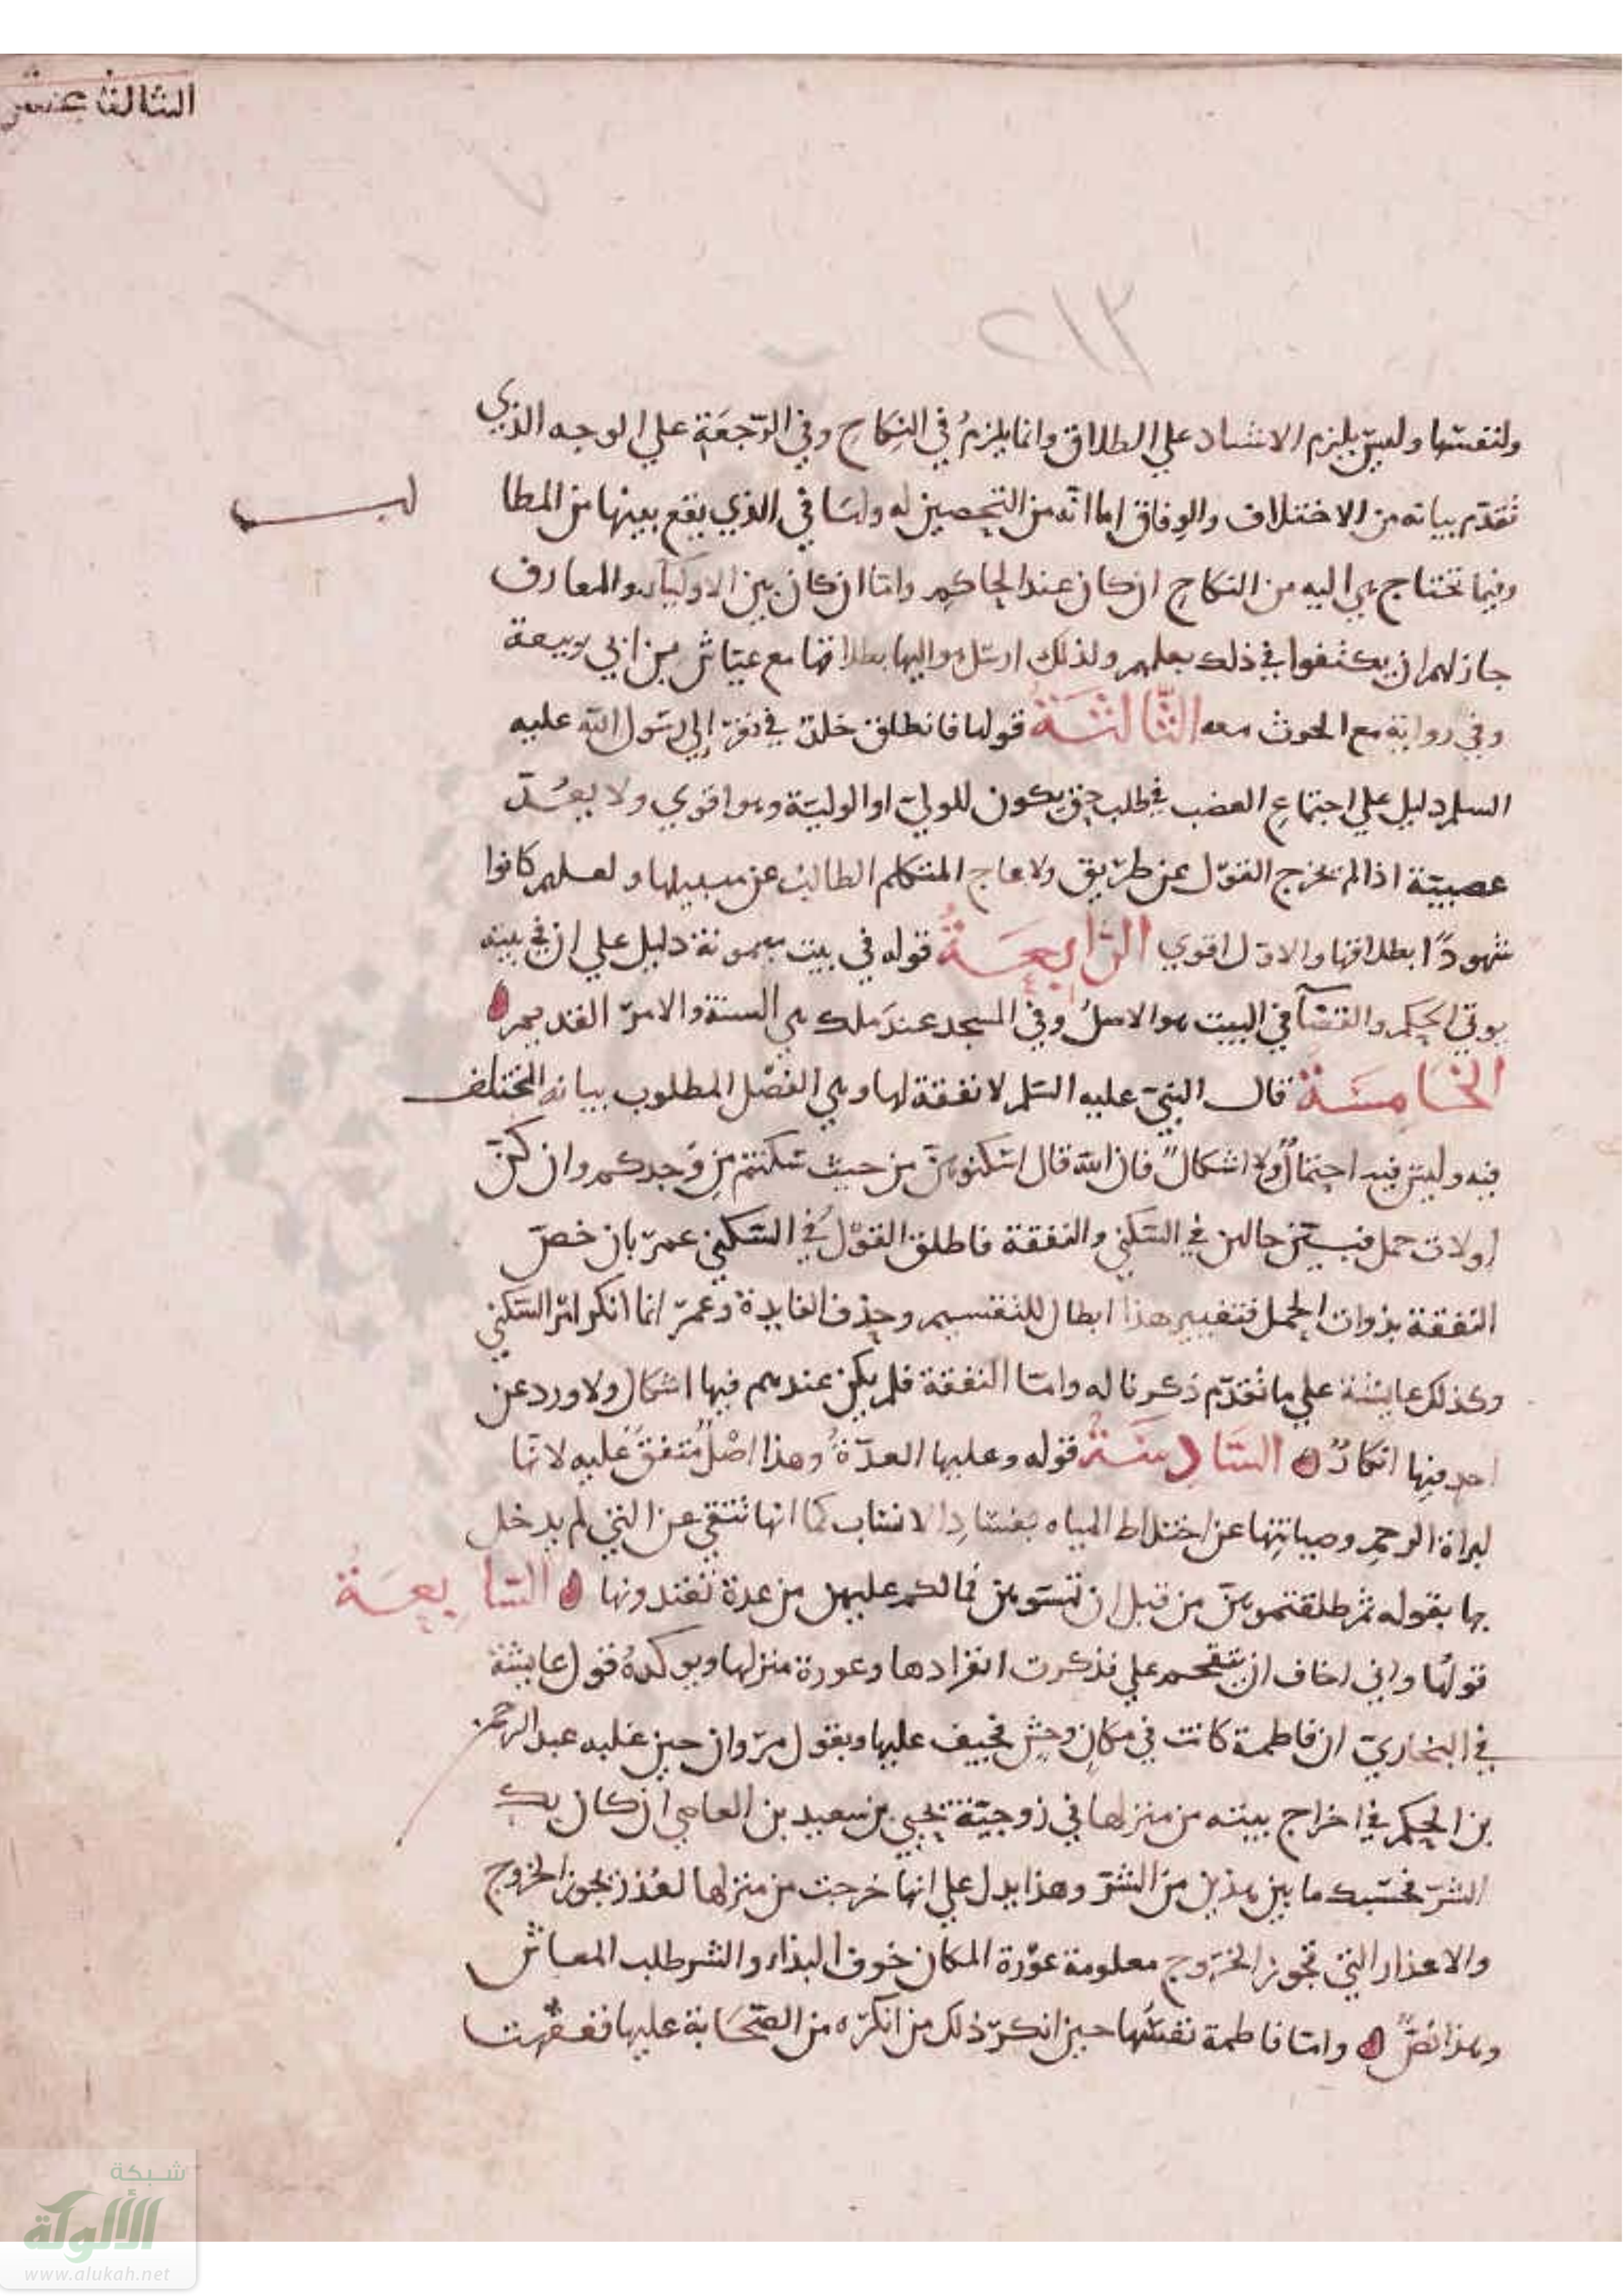 الثالث عشر
٢١٣
ولنفسها وليس يلزم الاشهاد علي الطلاق وانما يلزم في النكاح وفي الرّجعَة علي الوجه الذي
تقدّم بيانه من الاختلاف والوفاق اما انّه من التحصين له ولها في الذي يقع بينهما من المطا
لبــ
وفيما تحتاج هي اليه من النكاح ان كان عند الحاكم وامّا ان كان بين الاولياء والمعارف
جاز لهم ان يكتفوا في ذلك بعلمهم ولذلك ارسل هو اليها بطلاقها مع عيّاش بن ابي ربيعة
وفي رواية مع الحرث معه الثّالثَةُ قولها فانطلق خلد في نفر إلي رسول الله عليه
السلم دليل علي اجتماع العصب في طلب حق يكون للوليّ او الوليّة وهو اقوي ولا يعُدّ
عصبيّة اذا لم يخرج القول عن طريق ولا عاج المتكلم الطالب عن سبيلها ولعلهم كانوا
شهودًا بطلاقها والاول اقوي الرّابعَةُ قوله في بيت ميمونة دليل علي ان في بيته
يوتي الحكم والقضآ في البيت هو الاصلُ وفي المسجد عند ملك هي السنة والامر القديم
الخَامِسَةُ قال النبيّ عليه السّلم لا نفقة لها وهي الفصْل المطلوب بيانه المختلف
فيه وليس فيه احتمالٌ ولا اشكالٌ فان الله قال اسكنوهنّ من حيث سكنتم من وُجدكم وان كنّ
اولات حمل فبيّن حالهن في السّكني والنفقة فاطلق القوْلُ في السّكني عمرّ بان خصّ
النفقة بذوات الحمل فتغيير هذا ابطال للتقسيم وحذف الفايدة وعمرّ انما انكر امر السّكني
وكذلك عايشة علي ما تقدّم ذكرنا له وامّا النفقة فلم يكن عندهم فيها اشكال ولا ورد عن
احد منها انكارٌ السّادِسَةُ قوله وعليها العدّةُ وهذا اصْلٌ مُتفقٌ عليه لانّها
لبراة الرحمِ وصيانتها عن اختلاط المياه بفسادِ الانساب كما انها تنتفي عن التي لم يدخل
بها بقوله ثم طلقتموهنّ من قبل ان تمسّوهنّ فمالكم عليهن من عدة تعتدونها السّابعَةُ
قولُها واني اخاف ان يتقحم علي فذكرت انفرادها وعورة منزلها ويوكدهُ قول عايشة
في البخاريّ ان فاطمة كانت في مكانٍ وحشٍ فخيف عليها وبقول مرّوان حين غلبه عبد الرحمن
بن الحكم في اخراج بيته من منزلها في زوجيّة يحيي بن سعيد بن العاصي ان كان بك
الشرّ فحسْبك ما بين هذين من الشرّ وهذا يدل علي انها خرجت من منزلها لعُذر يجوز الخروج
والاعذار التي تجوز الخرّوج معلومة عوْرة المكان خوف البذاء والشر طلب المعاش
وهذا نصٌّ وامّا فاطمة نفسُها حين انكرّ ذلك من انكرّه من الصّحَابة عليها ففقهت
شبكة
الألوكة
www.alukah.net